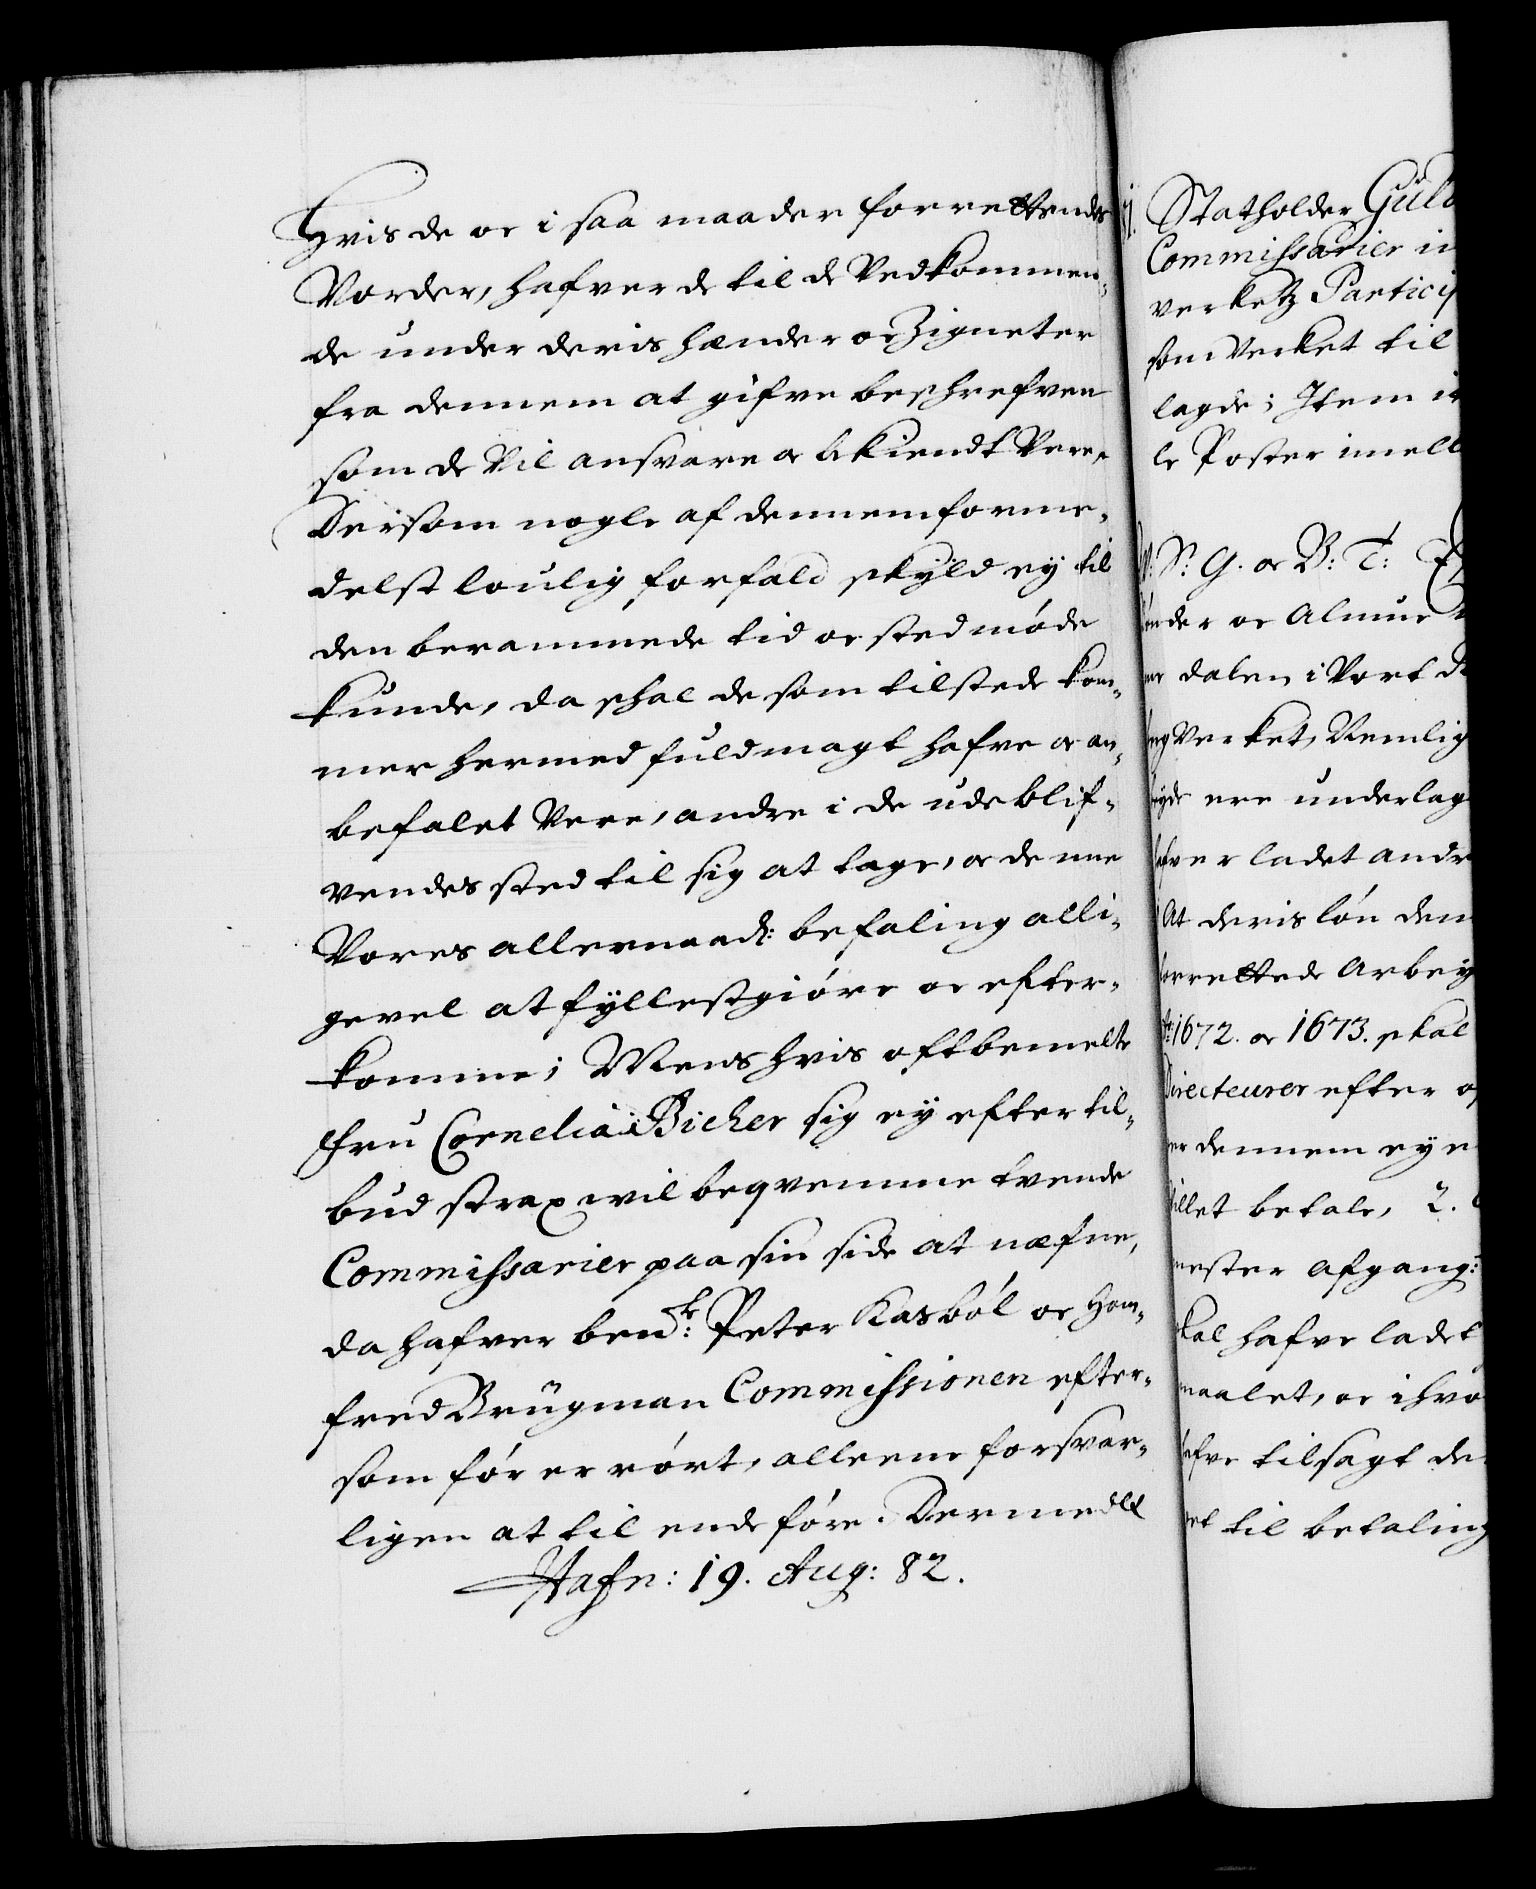 Hvis de oc i saa maader forrettendes
Vorder, hafver de til de Vedkommen-
de under deris hænder oc Zigneter
fra dennem at gifve beschrefven
som de Vil ansvare oc bekiendt Vere,
Dersom nogle af dennem forme-
delst loulig forfald skyld ey til
den berammede tid oc sted møde
kunde, da schal de som tilstede kom-
mer hermed fuldmagt hafve oc an-
befalet Vere, andre i de udeblif-
vendes sted til sig at tage, oc denne
Vores allernaad: befaling alli-
gevel at fyllestgiøre oc efter-
komme; Mens hvis oftbemelte
Fru Cornelia Bicker sig ey efter til-
bud strax wil beqvemme tvende
Commissarier paa sin side at næfne,
da hafver bente: Peter Kasbøl oc Hom-
fred Brügman Commissionen efter-
som før er rørt, alleene forsvar-
ligen at til ende føre. Dermedlt
Hafn: 19. Aug: 82.
Statholder Gül
Commissarier in
verketz Partici
som Verket til
lagde; Item i
le Poster imell
Sr. G. oc B: T:
ønder oc Almue
dalen i Vort
Verket, Nemlig
ere underlag
hafver ladet andr
At deris løn dem
forrettede Arbey
Ao: 1672. oc 1673. skal
Directeurer efter
dennem ey
villet betale, 2.
mester afgang:
skal hafve ladet
maalet, oc ihvo
hafve tilsagt de
til betaling